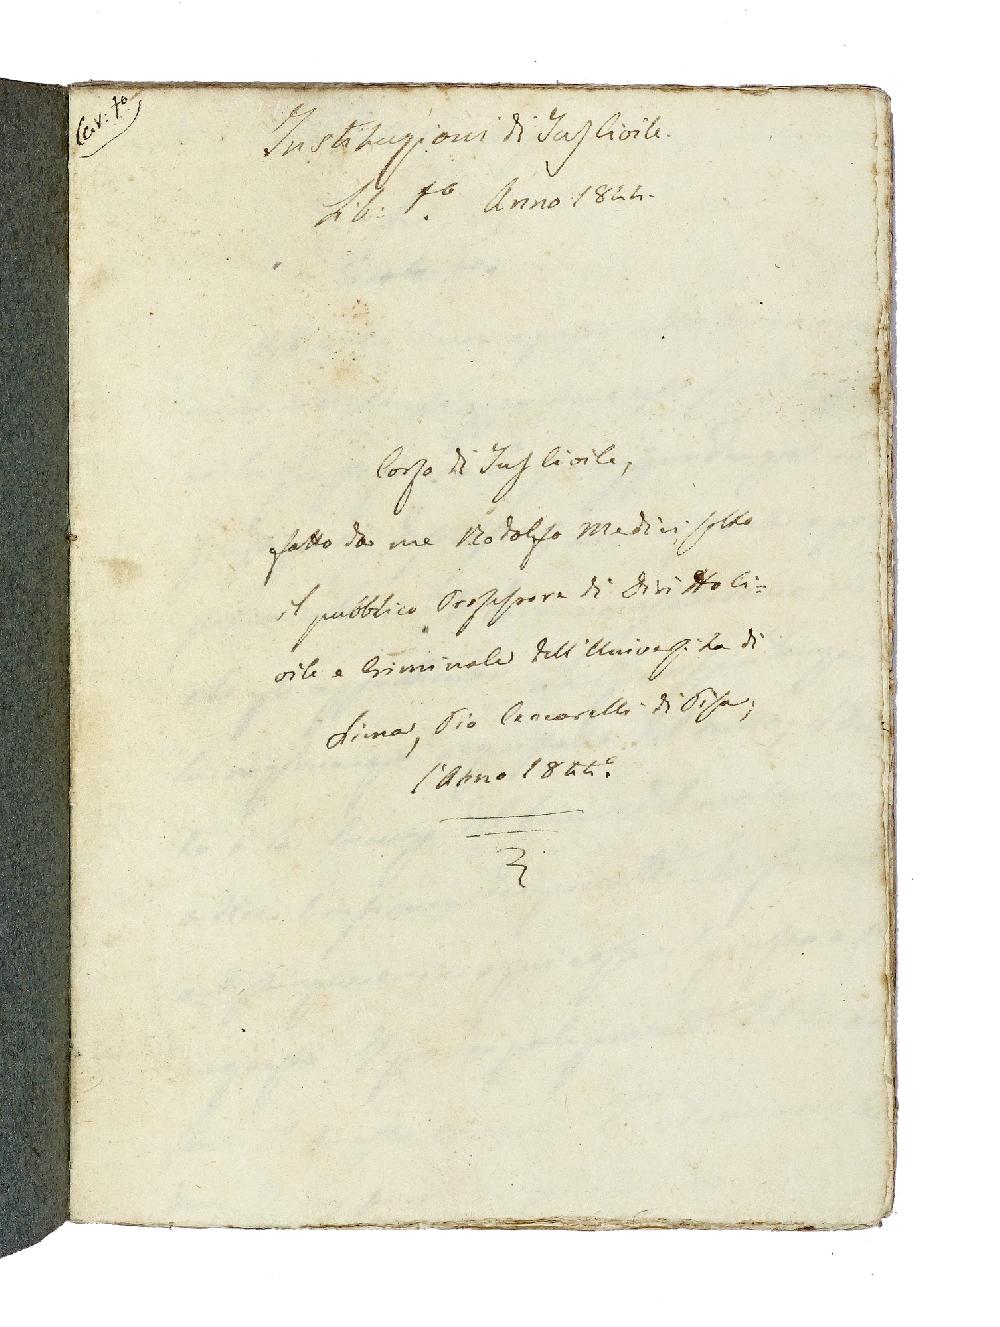 Car: 1º
Instituzioni di Jus Civile.
Lib: 1º. Anno 1844.
Corso di Jus Civile,
fatto da me Rodolfo Medici, sotto
il pubblico Professore di Diritto Ci=
vile e Criminale dell'Università di
Pisa;
l'Anno 1844.º